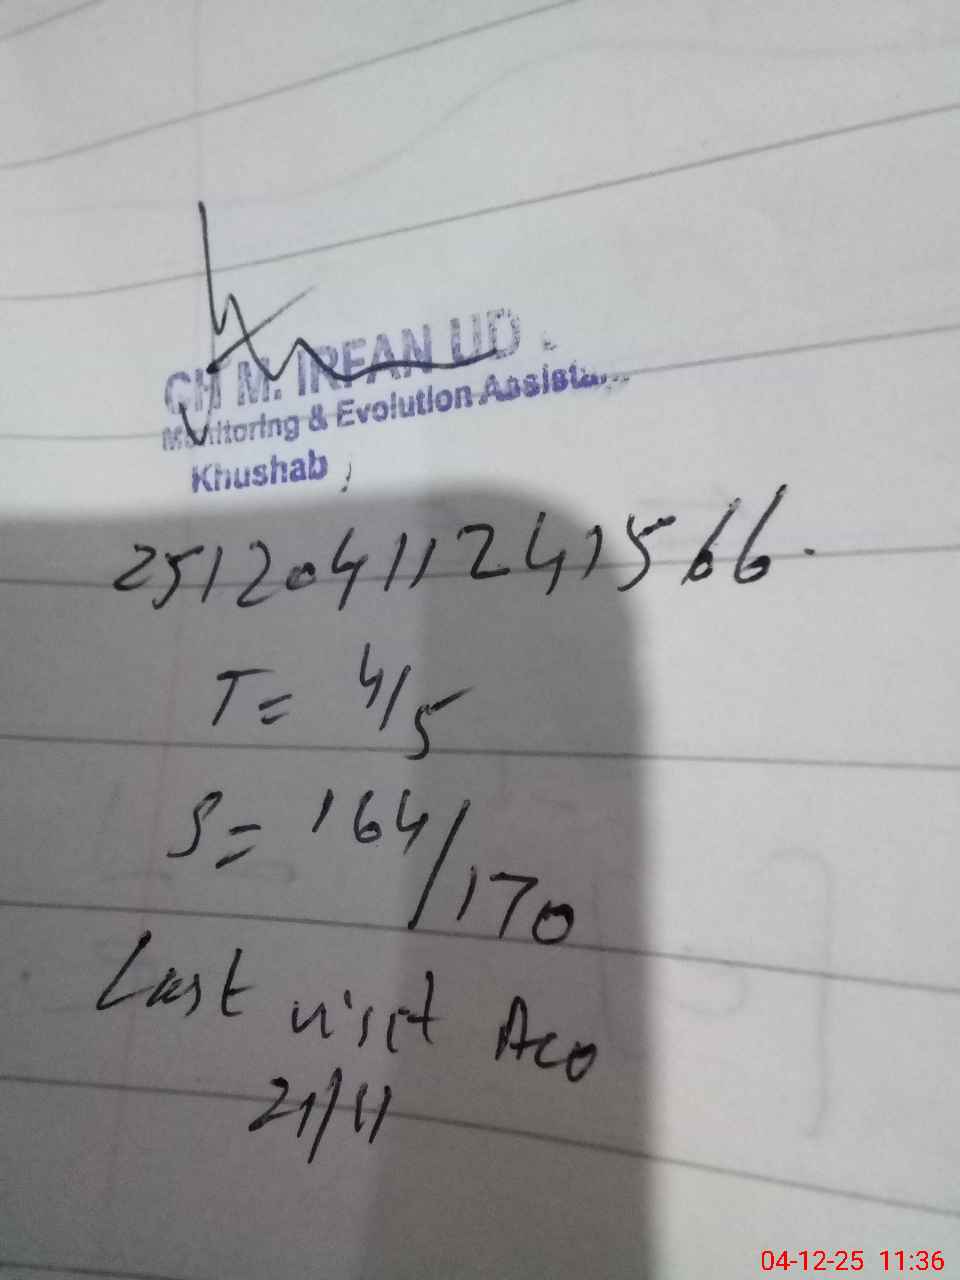 CH M. IRFAN UD
Monitoring & Evolution Assista
Khushab
25120411241566
T = 4/5
S = 164/170
Last visit Aeo
21/11
04-12-25 11:36